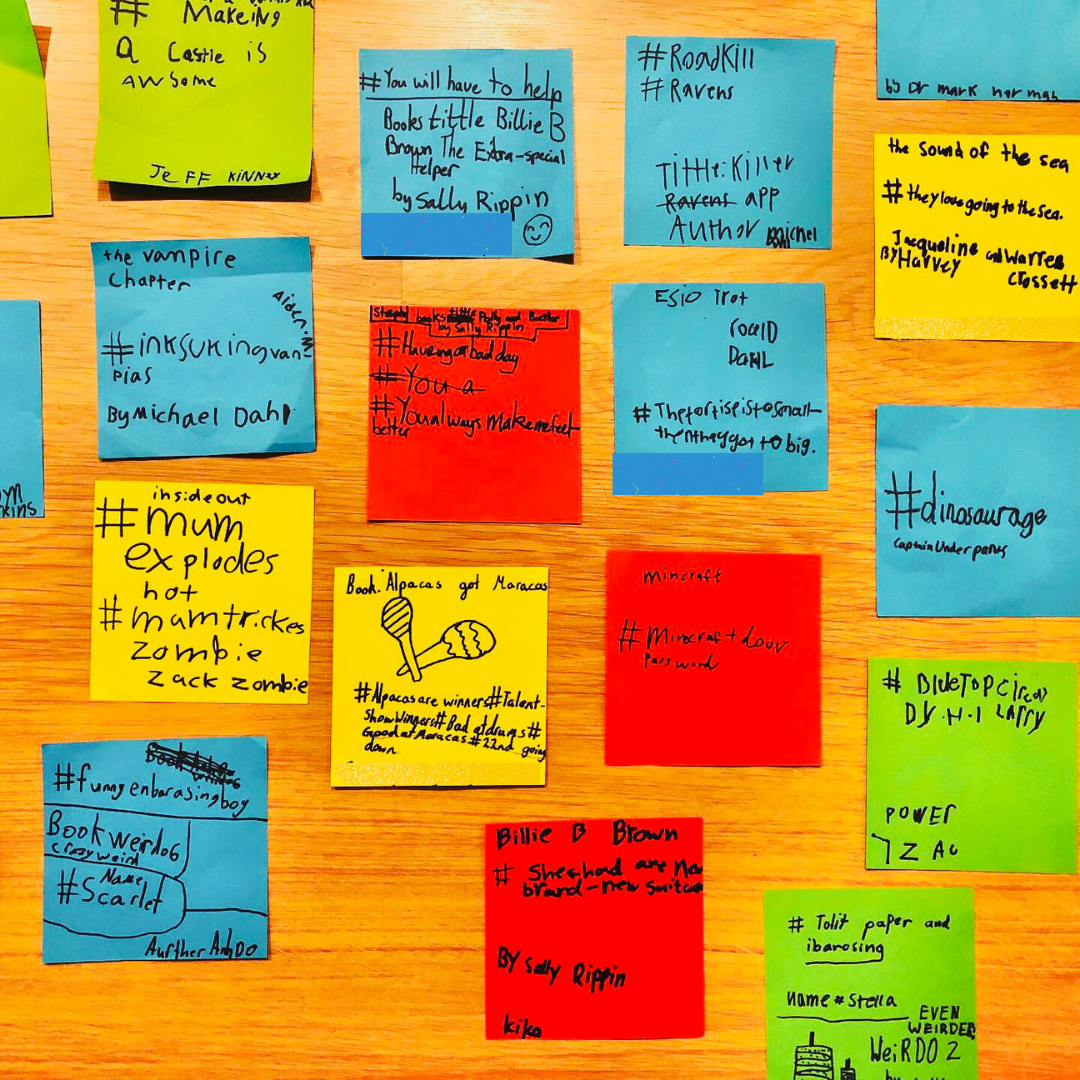 # Makeing
a Castle is
awsome
JeFF Kinney
#You will have to help
Books tittle Billie B
Brown The Extra-special
Helper
by Sally Rippin
#RoadKill
#Ravens
Tittle: Killer
Ravens app
Author Michel
by Dr mark norman
the sound of the sea
# they love going to the sea.
By Jacqueline and Warren
Harvey Crossett
the vampire
Chapter
Aiden.M
#inksukingvam
pias
By Michael Dahl
books Polly and Buster
by Sally Rippin
#Having a bad day
#You a
#You always make me feel
better
ESIO Trot
roalD
DaHL
#The tortise is to small
then they got to big.
#dinosaurage
Captain Underpants
insideout
#mum
explodes
hot
#mamtrickes
zombie
zack zombie
Book: Alpacas got Maracas
#Alpacas are winners #Talent-
Show Winners #Bad at drums #
Good at Maracas #22nd going
down
mincraft
#Minecraft door
password
By H.I Larry
POWER
ZAC
#funnyenbarasingboy
Book weirdo6
crazy weird
Name
#Scarlet
Aurther Anh Do
Billie B Brown
# She had are new
brand-new suitca
By Sally Rippin
kika
# Tolit paper and
ibarosing
name * Stella
EVEN
WEIRDER
WeiRDO 2